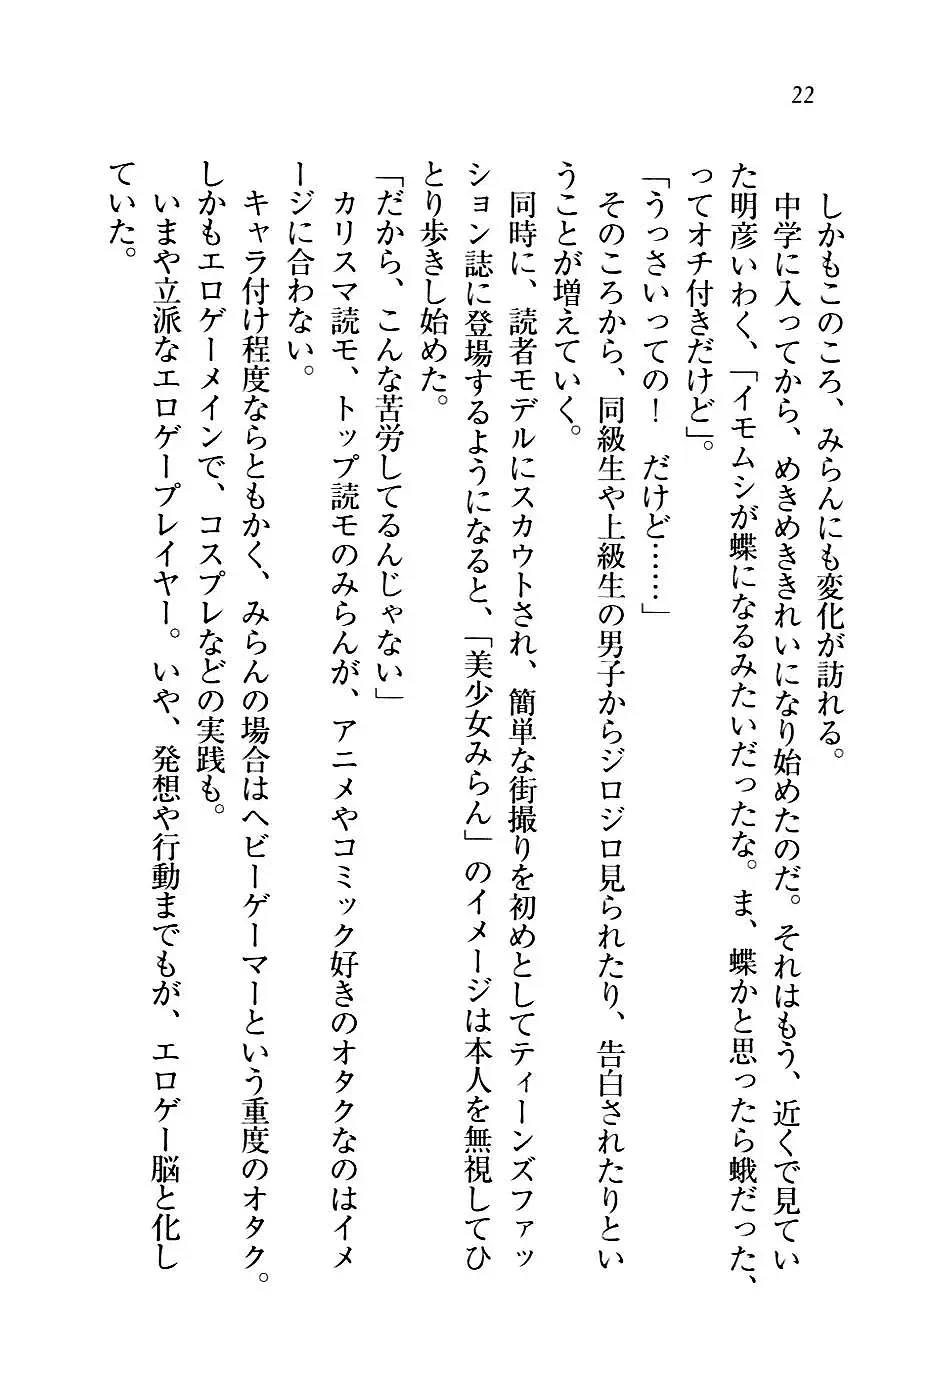 22
しかもこのころ、みらんにも変化が訪れる。
中学に入ってから、めきめききれいになり始めたのだ。それはもう、近くで見てい
た明彦いわく、「イモムシが蝶になるみたいだったな。ま、蝶かと思ったら蛾だった、
ってオチ付きだけど」。
「うっさいっての！　だけど……」
そのころから、同級生や上級生の男子からジロジロ見られたり、告白されたりとい
うことが増えていく。
同時に、読者モデルにスカウトされ、簡単な街撮りを初めとしてティーンズファッ
ション誌に登場するようになると、「美少女みらん」のイメージは本人を無視してひ
とり歩きし始めた。
「だから、こんな苦労してるんじゃない」
カリスマ読モ、トップ読モのみらんが、アニメやコミック好きのオタクなのはイメ
ージに合わない。
キャラ付け程度ならともかく、みらんの場合はヘビーゲーマーという重度のオタク。
しかもエロゲーメインで、コスプレなどの実践も。
いまや立派なエロゲープレイヤー。いや、発想や行動までもが、エロゲー脳と化し
ていた。